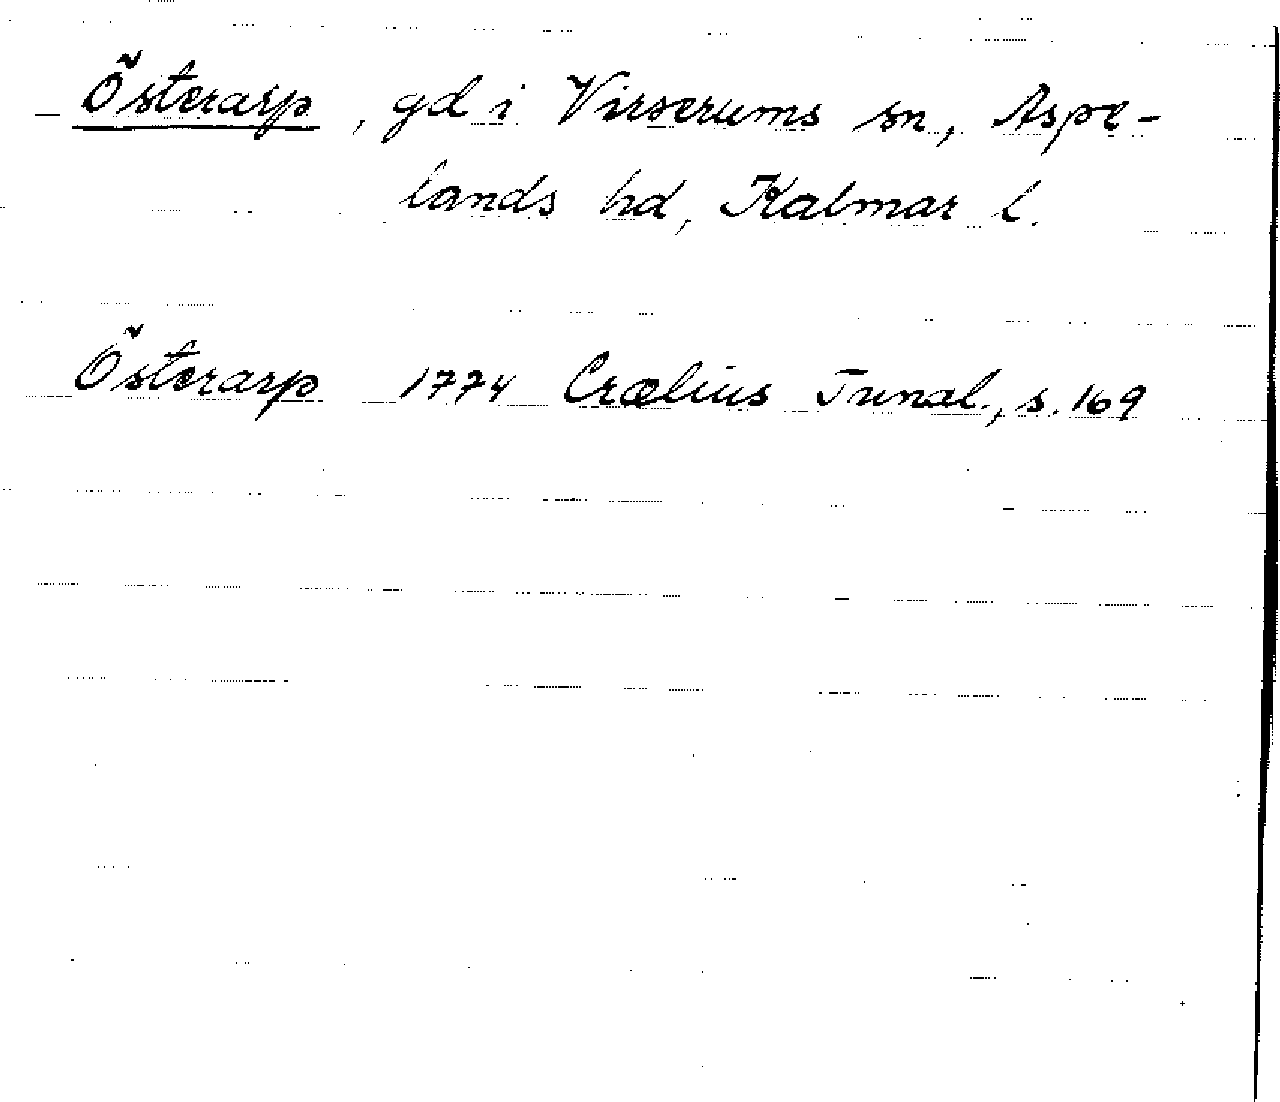 Österarp, gd i Virserums sn, Aspe-
lands hd, Kalmar l.
Österarp 1774 Crælius Tunal., s. 169